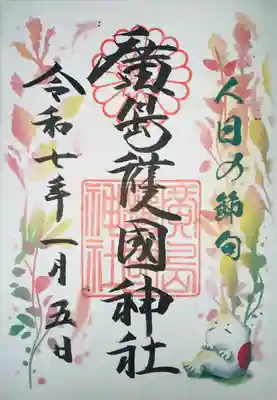 人日の節句
廣島護國神社
廣島
神社
令和七年一月五日